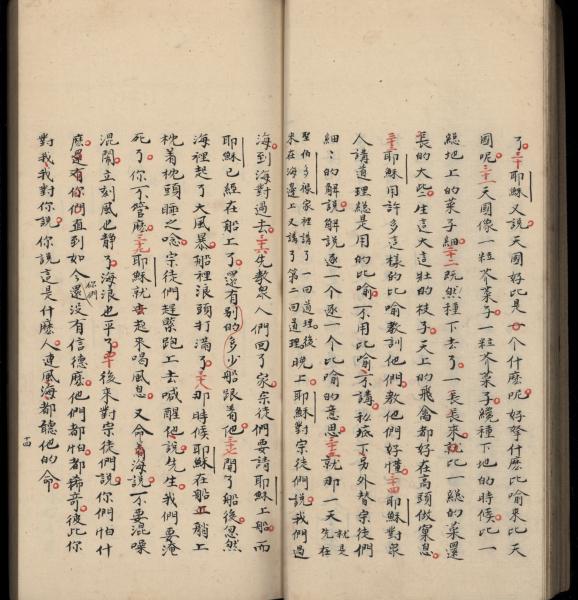 了三十耶穌又說天國好比是一个什麽呢好拏什麽比喻來比天
國呢三十一天國像一粒芥菜子一粒芥菜子纔種下地的時候比一
總地上的菜子細三十二旣然種下去了一長長來就比一總的菜還
長的大些生這大這壯的枝子天上的飛禽都好在高頭做窠息
三十三耶穌用許多這樣的比喻教訓他們教他們好懂三十四耶穌對衆
人講道理總是用的比喻不用比喻不講私底下另外替宗徒們
細〻的解說解說逐一个逐一个比喻的意思三十五就那一天就是先在
聖伯多祿家裡講了一回道理後來在海邊上又講了第二回道理晚上耶穌對宗徒們說我們過
海到海對過去三十六先教衆人們回了家宗徒們要請耶穌上船而
耶穌已經在船上了還有别的多少船跟着他三十七開了船後忽然
海裡起了大風暴船裡浪頭打滿了三十八那時候耶穌在船立艄上
枕着枕頭睡之唸宗徒們趕緊跑上去喊醒他說先生我們要淹
死了你不管麽三十九耶穌就立起來喝風息又命着海說不要混噪
混鬧立刻風也靜了海浪也平了四十後來對宗徒們說你們怕什
麽還有你們直到如今你們還沒有信德麽他們都怕都稀奇彼此你
對我我對你說你說這是什麽人連風海都聽他的命
十四